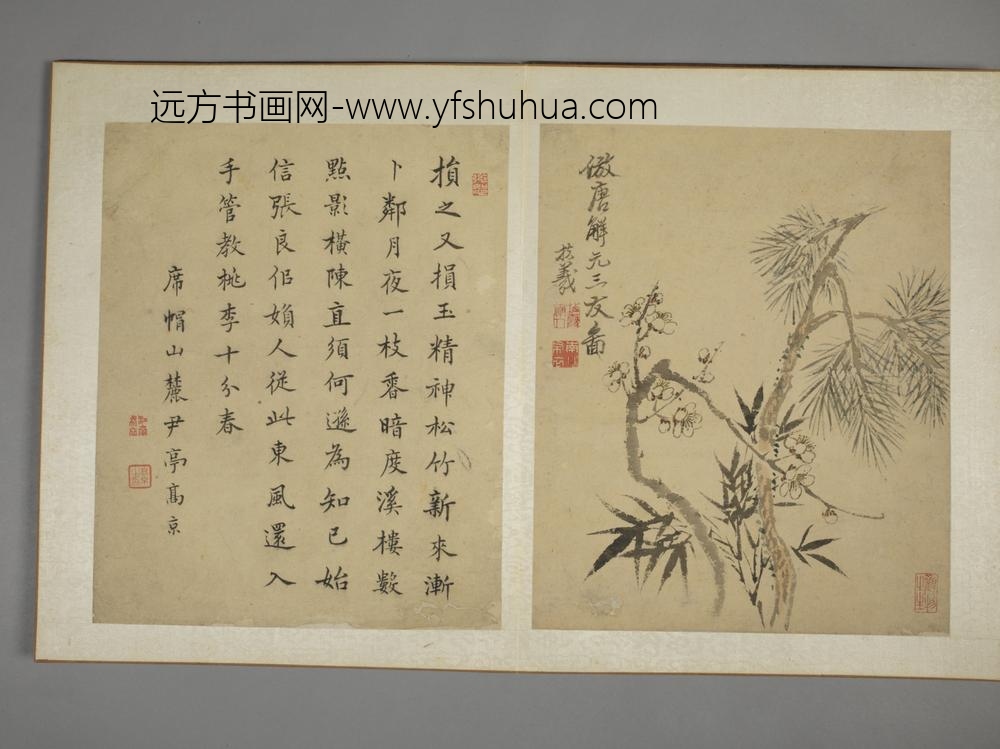 远方书画网-www.yfshuhua.com
倣唐解元三友圖
扶羲
損之又損玉精神松竹新來漸
卜鄰月夜一枝香暗度溪樓數
點影橫陳直須何遜為知己始
信張良似婦人從此東風還入
手管教桃李十分春
席帽山麓尹亭高京